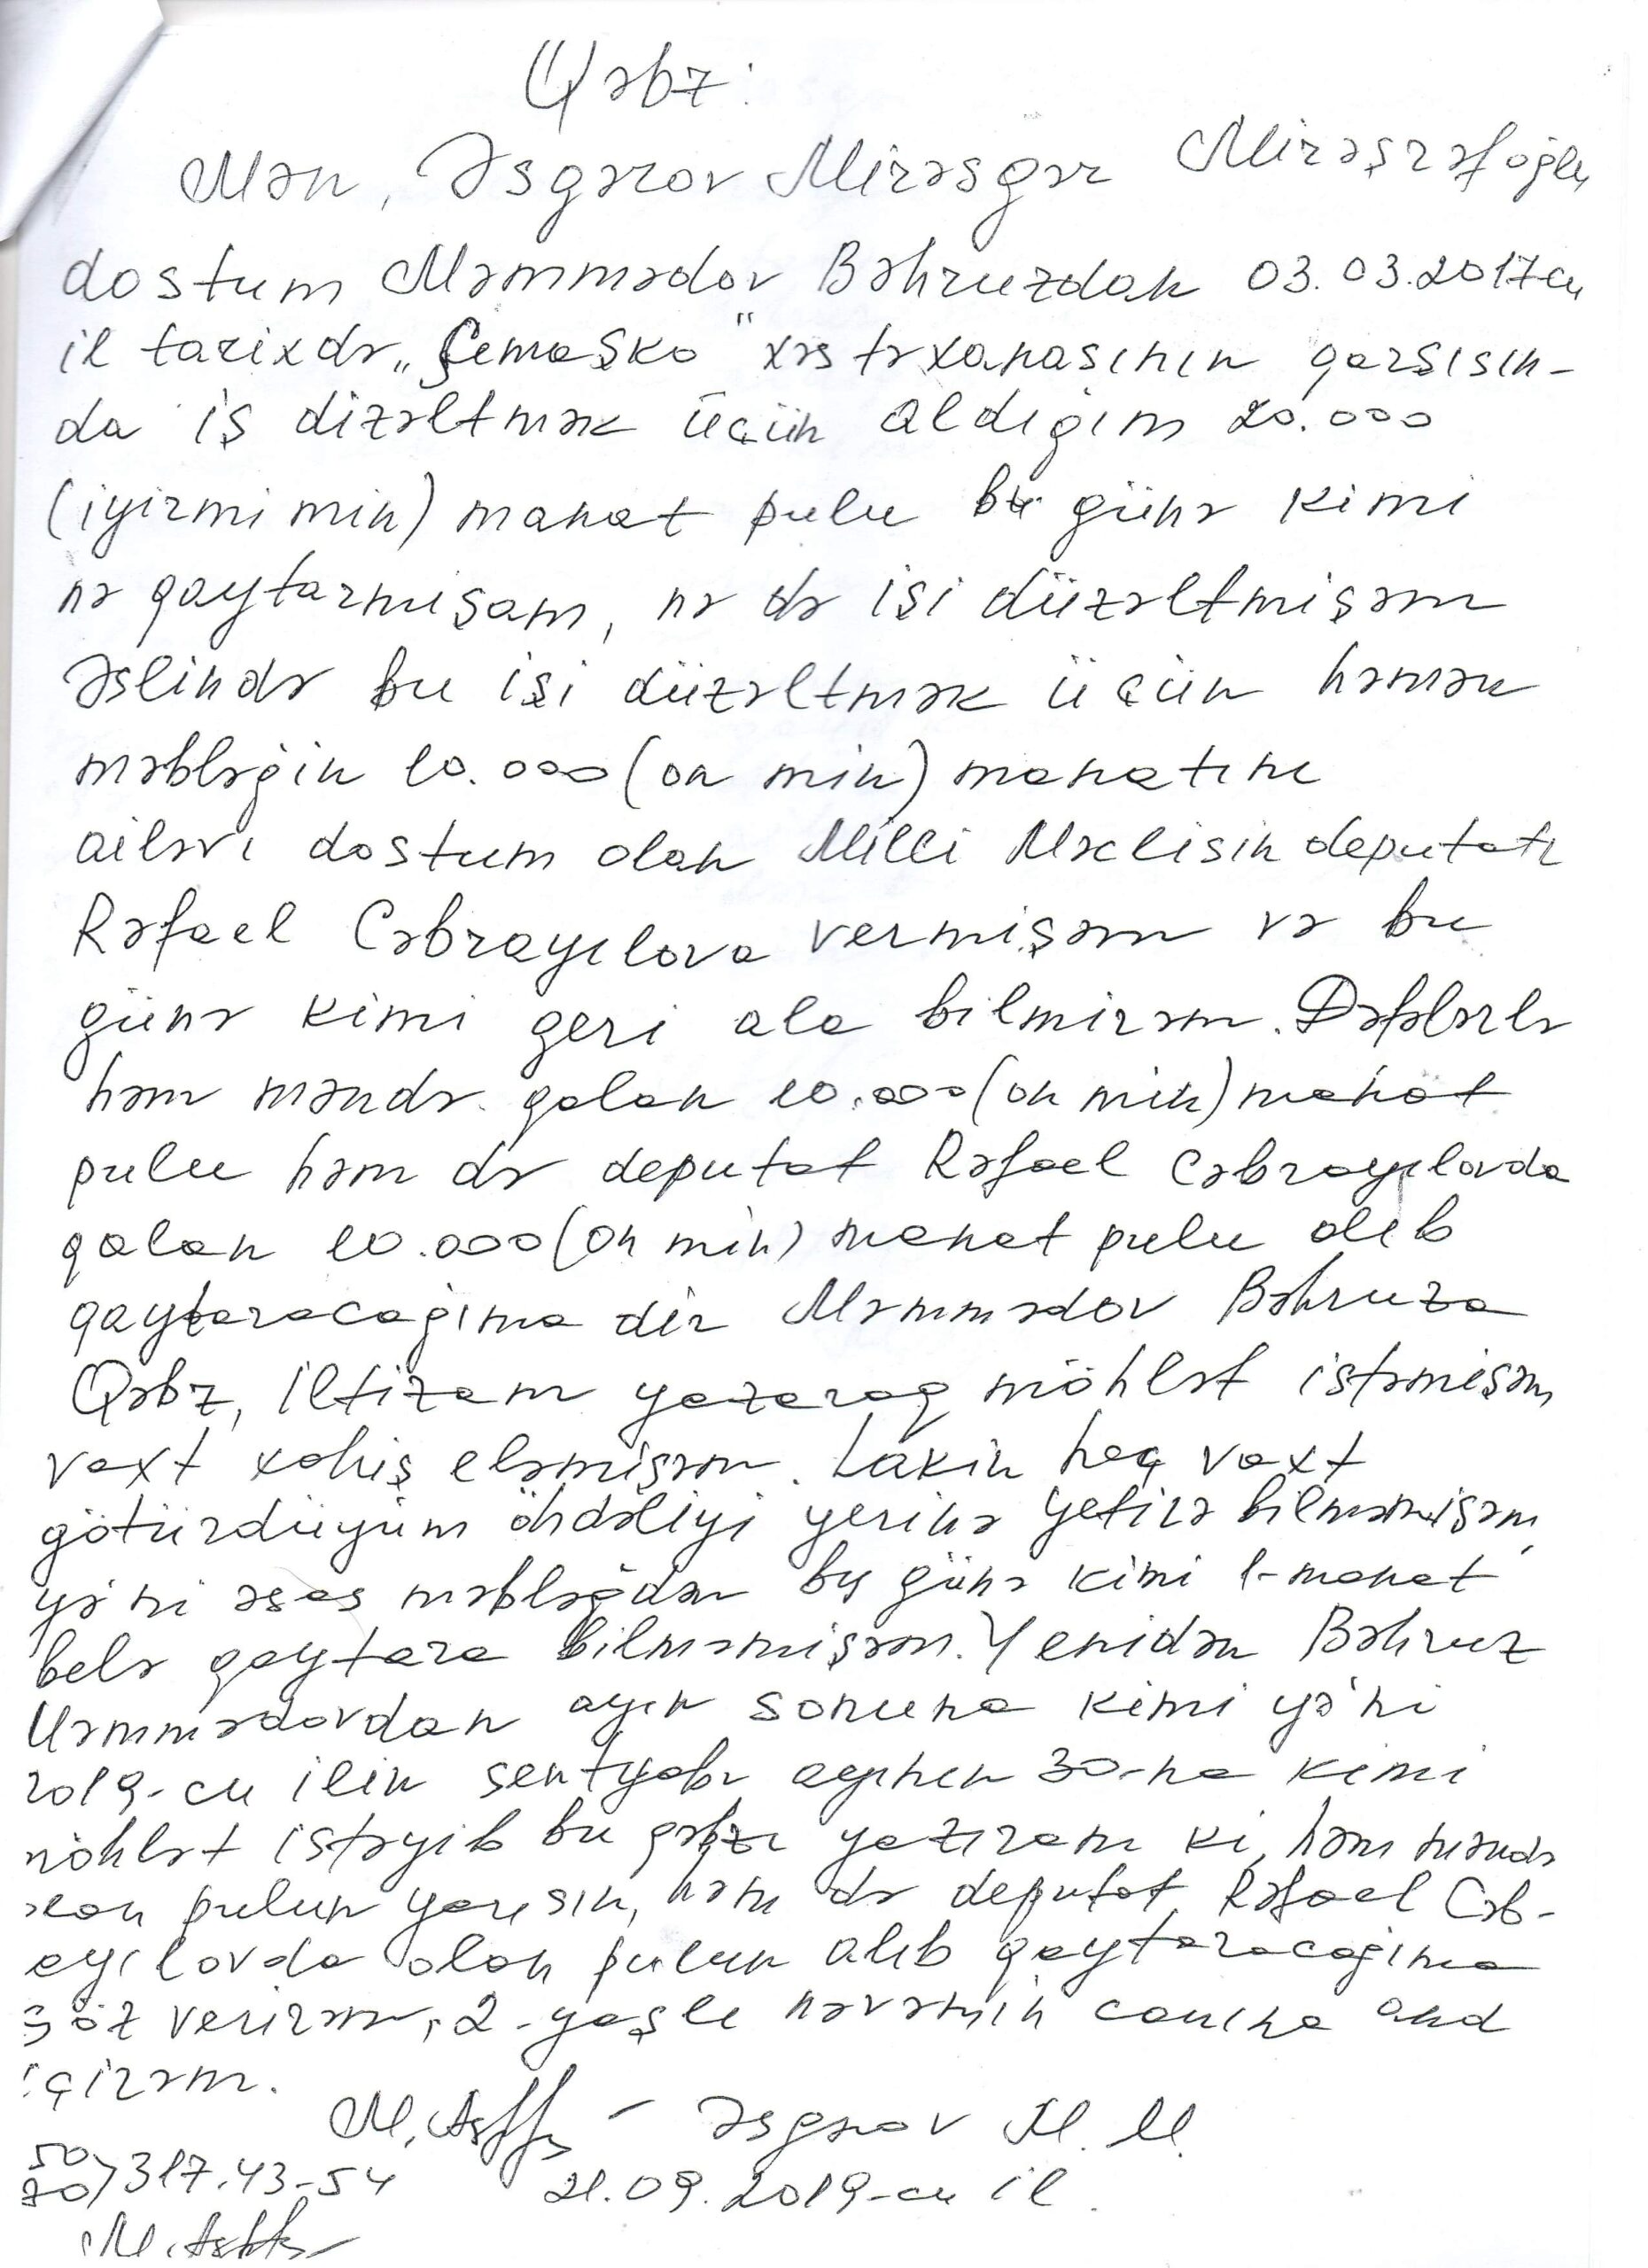 Qəbz:
Mən, Əsgərov Mirəsgər Mirəşrəf oğlu
dostum Məmmədov Bəhruzdan 03.03.2017 cu
il tarixdə „Şemaşko" xəstəxanasının qarşısın-
da iş dizəltmək üçün aldığım 20.000
(iyirmi min) manat pulu bu günə kimi
nə qaytarmışam, nə də işi düzəltmişəm
Əslində bu işi düzəltmək üçün həmən
məbləğin 10.000 (on min) manatını
ailəvı dostum olan Milli Məclisin deputatı
Rəfael Cəbrayılova vermişəm və bu
günə kimi geri ala bilmirəm. Dəfələrlə
həm məndə qalan 10.000 (on min) manat
pulu həm də deputat Rəfael Cəbrayılovda
qalan 10.000 (on min) manat pulu alıb
qaytaracağıma dir Məmmədov Bəhruza
Qəbz, iltizam yazaraq möhlət istəmişəm,
vaxt xahiş eləmişəm. Lakin heç vaxt
götürdüyüm öhdəliyi yerinə yetirə bilməmişəm,
yə'ni əsas məbləğdən bu günə kimi 1-manat
belə qaytara bilməmişəm. Yenidən Bəhruz
Məmmədovdan ayın sonuna kimi yə'ni
2019-cu ilin sentyabr ayının 30-na kimi
möhlət istəyib bu qəbzı yazıram ki, həm məndə
olan pulun yarısın, həm də deputat Rəfael Cəb-
ayılovda olan pulun alıb qaytaracağıma
söz verirəm, 2-yaşlı nəvəmin canına and
içirəm.
Əsgərov M. M.
50
70) 317.43-54 21.09.2019-cu il.